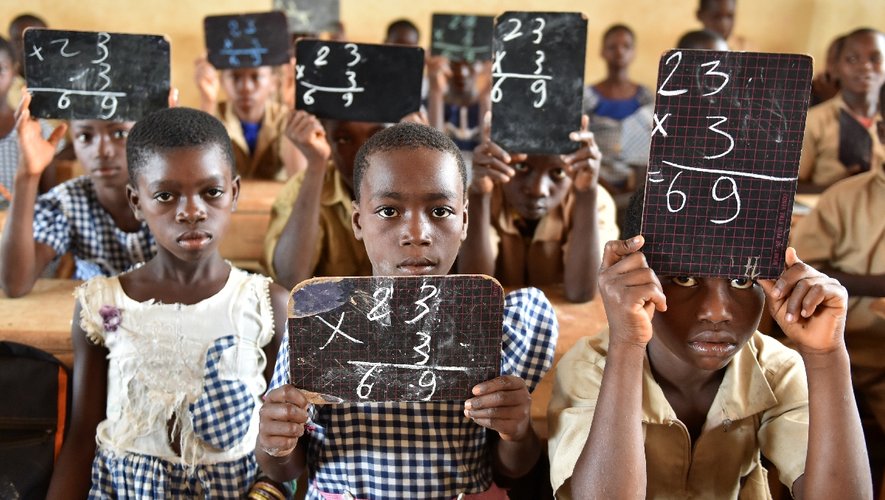 23
x 3
69
23
23
x 3
69
23
x 3
69
23
x 3
= 69
23
x 3
69